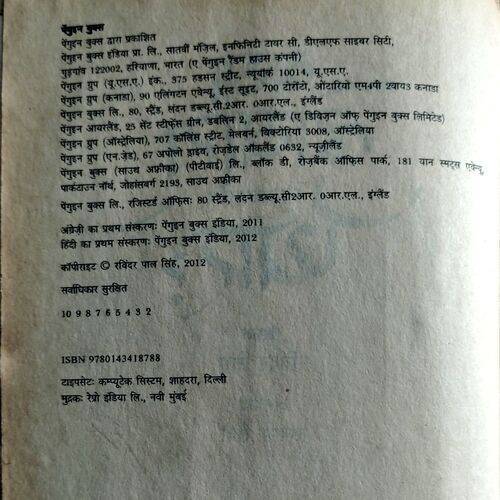 पेंगुइन बुक्स
पेंगुइन बुक्स द्वारा प्रकाशित
पेंगुइन बुक्स इंडिया प्रा. लि., सातवीं मंज़िल, इनफिनिटी टावर सी, डीएलएफ साइबर सिटी,
गुड़गांव 122002, हरियाणा, भारत (ए पेंगुइन रैंडम हाउस कंपनी)
पेंगुइन ग्रुप (यू.एस.ए.) इंक., 375 हडसन स्ट्रीट, न्यूयॉर्क 10014, यू.एस.ए.
पेंगुइन ग्रुप (कनाडा), 90 एलिंगटन एवेन्यू, ईस्ट सूइट, 700 टोरोंटो, ओंटारियो एम4पी 2वाय3 कनाडा
पेंगुइन बुक्स लि., 80, स्ट्रैंड, लंदन डब्ल्यू.सी.2आर. 0आर.एल., इंग्लैंड
पेंगुइन आयरलैंड, 25 सेंट स्टीफेंस ग्रीन, डबलिन 2, आयरलैंड (ए डिविज़न ऑफ् पेंगुइन बुक्स लिमिटेड)
पेंगुइन ग्रुप (ऑस्ट्रेलिया), 707 कॉलिंस स्ट्रीट, मेलबर्न, विक्टोरिया 3008, ऑस्ट्रेलिया
पेंगुइन ग्रुप (एन.ज़ेड), 67 अपोलो ड्राइव, रोज़डेल ऑकलैंड 0632, न्यूज़ीलैंड
पेंगुइन बुक्स (साउथ अफ्रीका) (पीटीवाई) लि., ब्लॉक डी, रोज़बैंक ऑफिस पार्क, 181 यान स्मट्स एवेन्यू,
पार्कटाउन नॉर्थ, जोहांसबर्ग 2193, साउथ अफ्रीका
पेंगुइन बुक्स लि., रजिस्टर्ड ऑफ़िसः 80 स्ट्रैंड, लंदन डब्ल्यू.सी2आर. 0आर.एल., इंग्लैंड
अंग्रेज़ी का प्रथम संस्करणः पेंगुइन बुक्स इंडिया, 2011
हिंदी का प्रथम संस्करणः पेंगुइन बुक्स इंडिया, 2012
कॉपीराइट © रविंदर पाल सिंह, 2012
सर्वाधिकार सुरक्षित
10 9 8 7 6 5 4 3 2
ISBN 9780143418788
टाइपसेटः कम्प्यूटेक सिस्टम, शाहदरा, दिल्ली
मुद्रकः रेप्रो इंडिया लि., नवी मुंबई